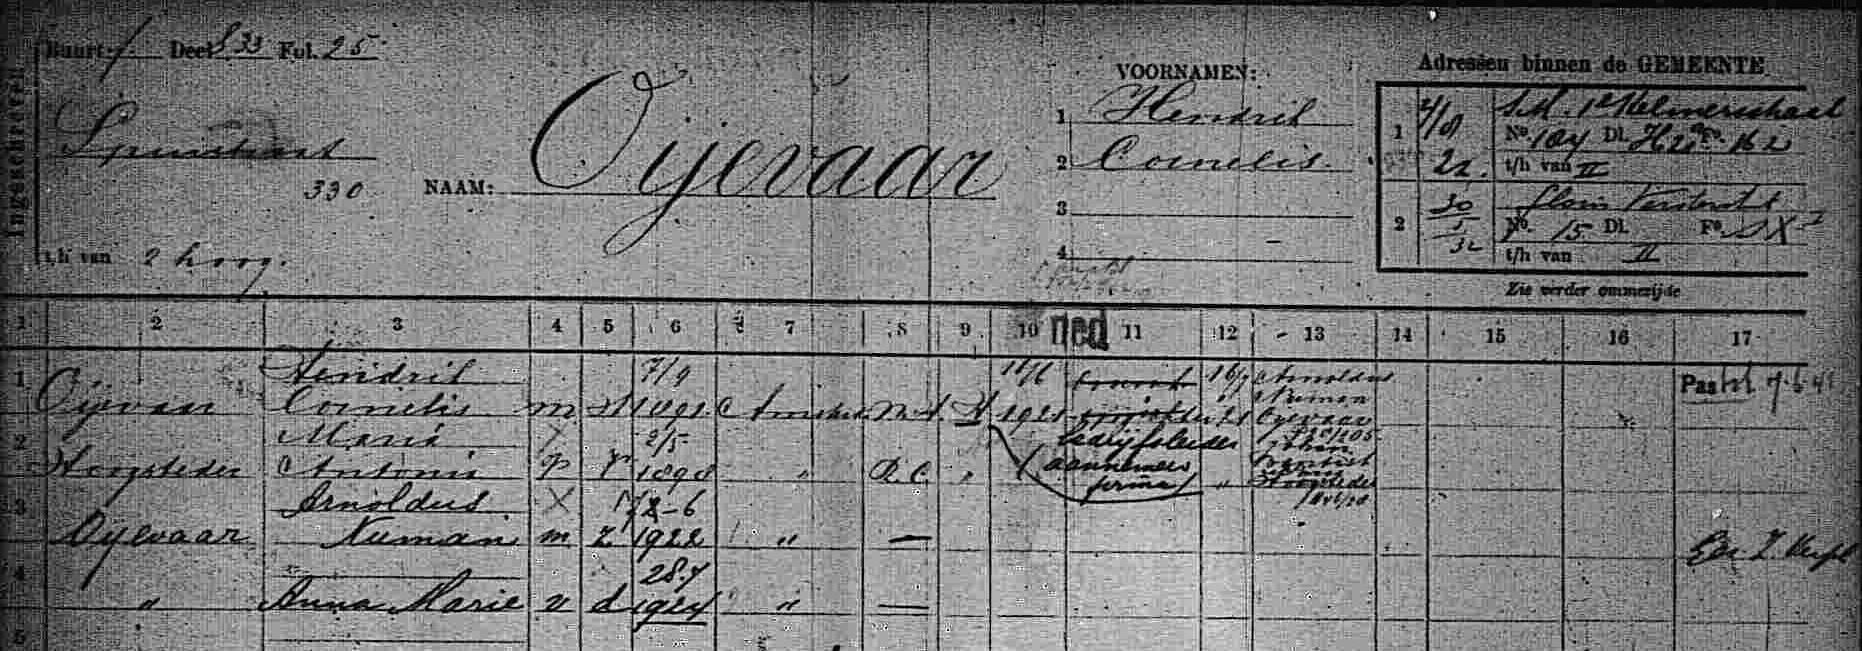 Ingeschreven
Buurt f. Deel 33 Fol. 25
Spuistraat
330
t/h van 2 hoog.
NAAM: Oijevaar
VOORNAMEN:
1 Hendrik
2 Cornelis.
3
4
Adressen binnen de GEMEENTE
1 22. 1e Helmersstraat
No. 104 Dl. H2 Fo. 162
t/h van II
2 30 32 Floris Versterstr
No. 15 Dl. Fo.
t/h van II
Zie verder ommezijde
ned
1 2 3 4 5 6 7 8 9 10 11 12 13 14 15 16 17
1 Hendrik 7/9 11/6 16/7 Arnoldus Numan
Oijevaar Cornelis m 1891 Amsterd N.H. H 1921 Oijevaar
Past 7.6.41
2 Maria 2/5 bedrijfsleider
Hoogsteder Antonia 1898 " R.C. " (aannemers firma) " Hoogsteder
3 Arnoldus 12-6
Oyevaar Numan m z 1922 " —
4 28.7
" Anna Marie v d 1924 " —
5